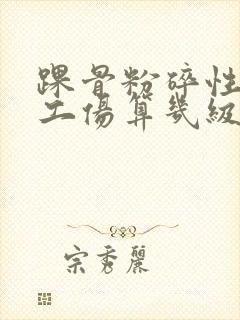 踝骨粉碎性
工傷算幾級
宗秀麗